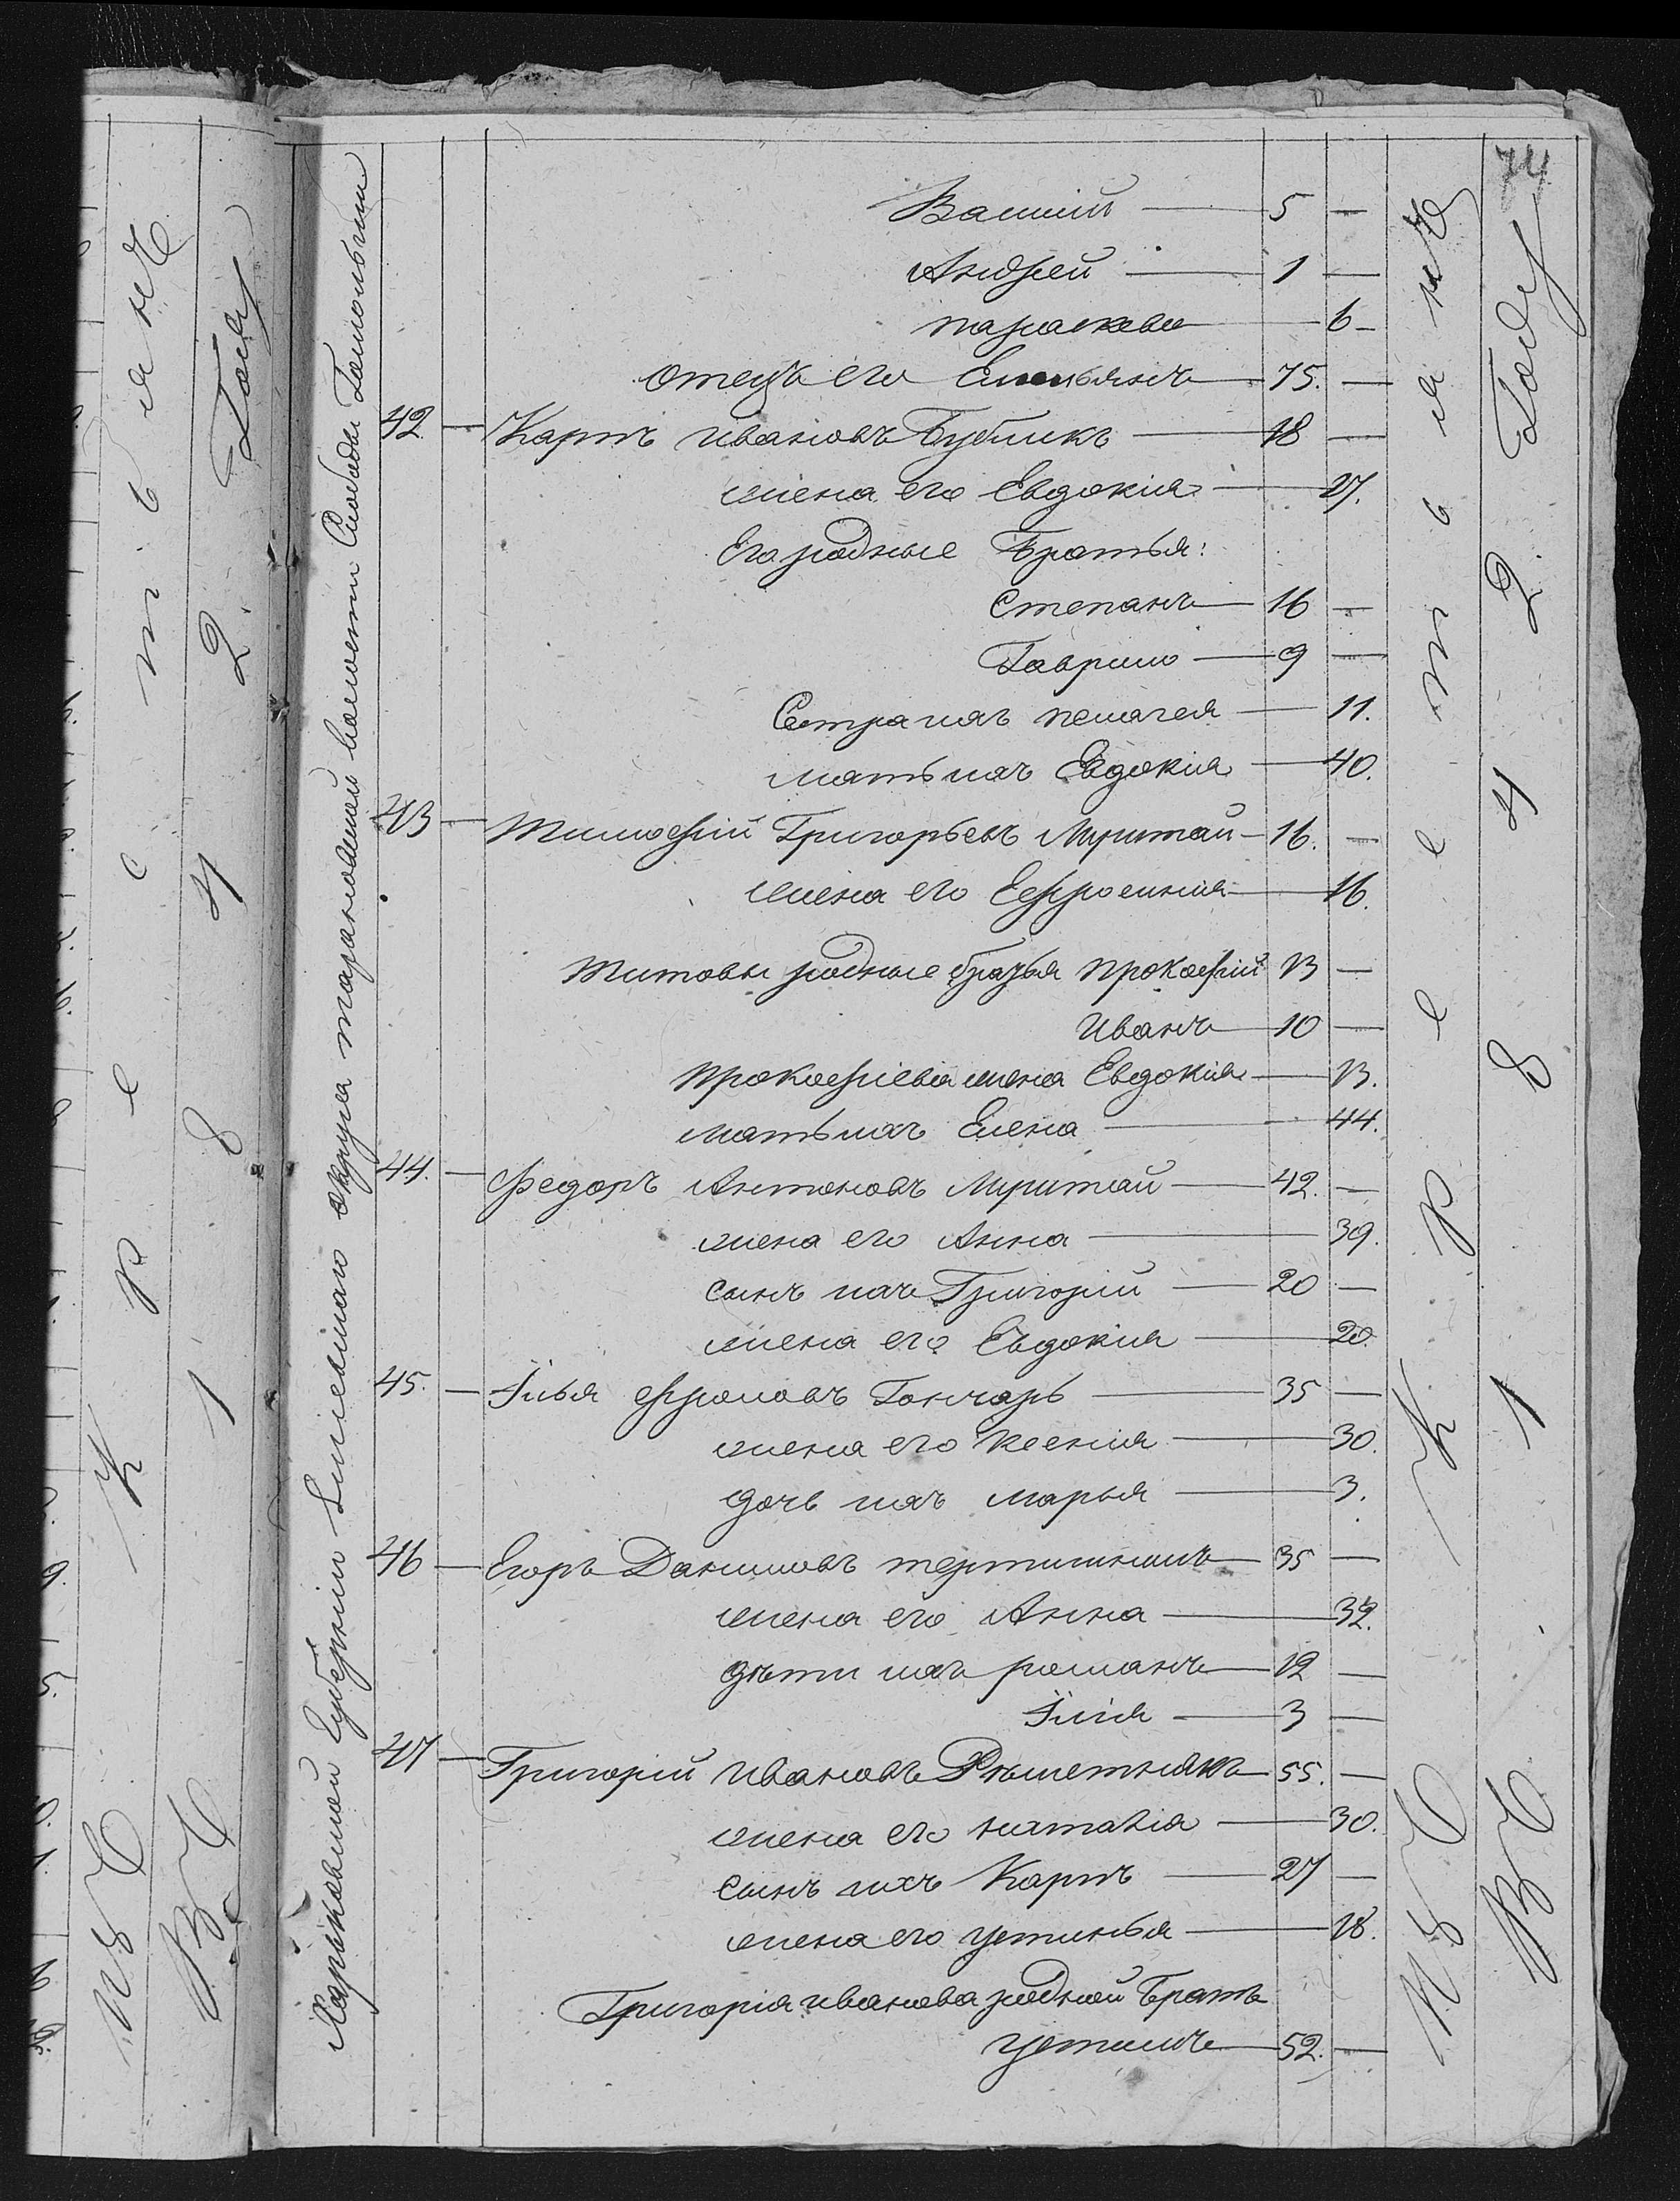 74
Харьковской Губерніи Зміевскаго округа тарановской волости Слободы Гомольши
Василій — 5 —
Андрей — 1 —
параскева — 6 —
отецъ его Емельянъ — 75. —
42. — Карпъ ивановъ Бубликъ — 18 —
жена его Евдокія — 27.
Его родные Братья:
Степанъ — 16 —
Гаврило — 9 —
Сестра ихъ пелагея — 11.
мать ихъ Евдокия — 40.
43 — Тимофѣй Григорьевъ — 16. —
жена его Ефросинія — 16.
Титовы родные братья прокофій 13 —
иванъ — 10 —
прокофіева жена Евдокія — 13.
мать ихъ Елена — 44.
44. — Федоръ Антоновъ — 42. —
жена его Анна — 39.
сынъ ихъ Григорій — 20 —
жена его Евдокія — 20.
45. — Илья Фроловъ Гончаръ — 35 —
жена его ксенія — 30.
дочь ихъ марья — 3.
46 — Егоръ Даниловъ — 35 —
жена его Анна — 32.
дѣти ихъ романъ — 12 —
Илія — 3 —
47 — Григорій ивановъ Рѣшетнякъ — 55. —
жена его наталія — 30.
сынъ ихъ Карпъ — 27 —
жена его устинья — 18.
Григорія иванова родной Братъ
устинъ — 52. —
Изъ Крестьянъ
Въ 1842 Году
Изъ Крестьянъ
Въ 1842 Году